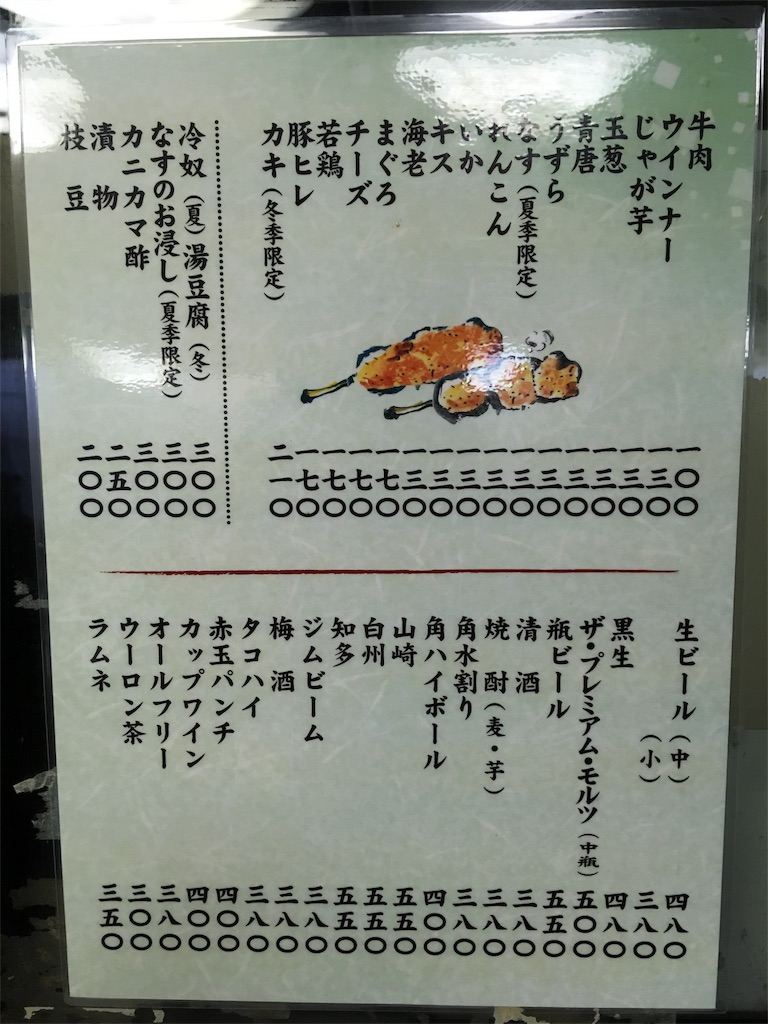 牛肉 一〇〇
ウインナー 一三〇
じゃが芋 一三〇
玉葱 一三〇
青唐 一三〇
うずら 一三〇
なす(夏季限定) 一三〇
れんこん 一三〇
いか 一三〇
キス 一三〇
海老 一三〇
まぐろ 一七〇
チーズ 一七〇
若鶏 一七〇
豚ヒレ 一七〇
カキ(冬季限定) 二一〇
冷奴(夏)湯豆腐(冬) 三〇〇
なすのお浸し(夏季限定) 三〇〇
カニカマ酢 三〇〇
漬物 二五〇
枝豆 二〇〇
生ビール(中) 四八〇
(小) 三八〇
黒生 四八〇
ザ・プレミアム・モルツ(中瓶) 五〇〇
瓶ビール 五五〇
清酒 三八〇
焼酎(麦・芋) 三八〇
角水割り 三八〇
角ハイボール 四〇〇
山崎 五五〇
白州 五五〇
知多 五五〇
ジムビーム 三八〇
梅酒 三八〇
タコハイ 三八〇
赤玉パンチ 四〇〇
カップワイン 四〇〇
オールフリー 三八〇
ウーロン茶 三〇〇
ラムネ 三五〇